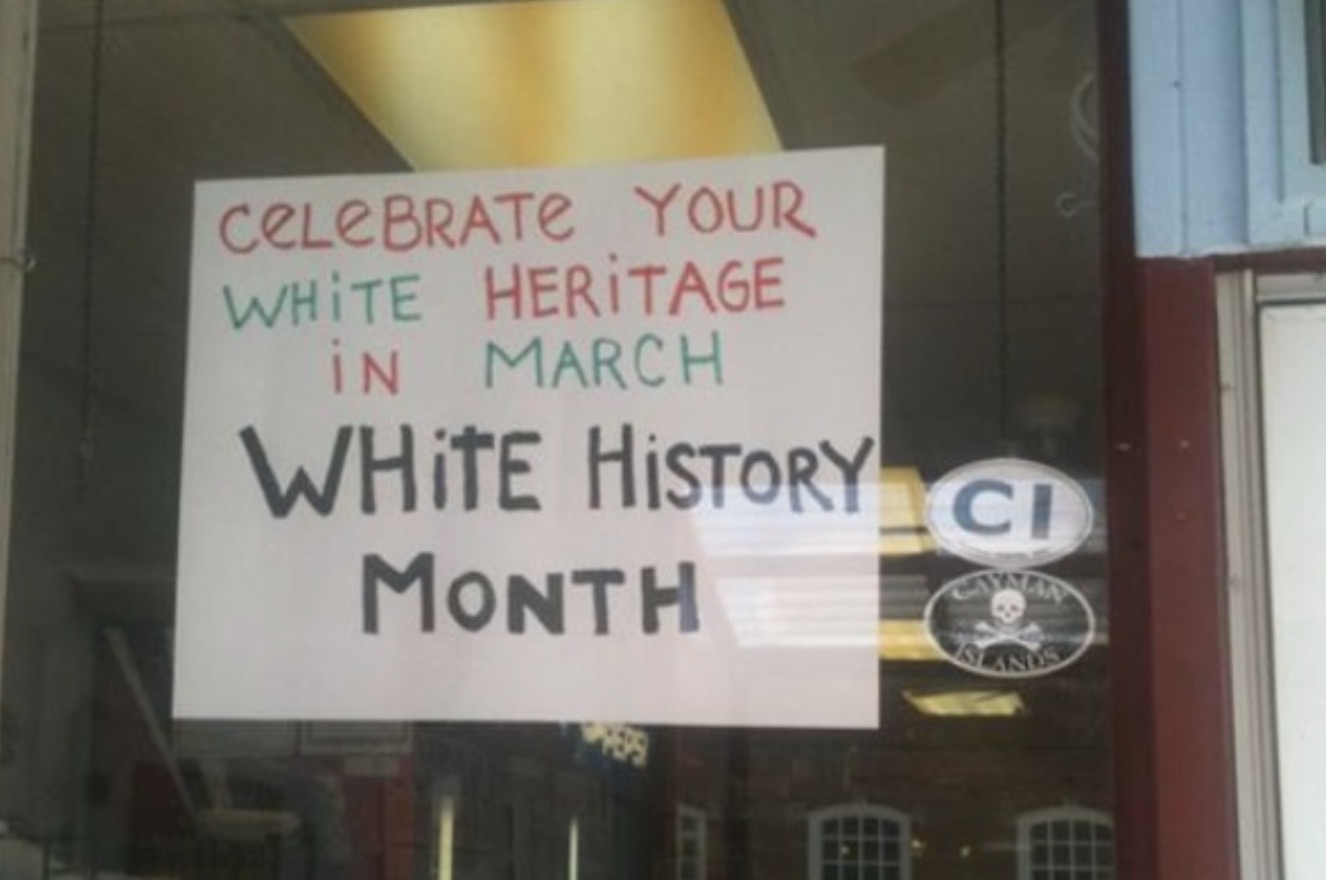 CELEBRATE YOUR
WHiTE HERiTAGE
iN MARCH
WHiTE HiSTORY
MONTH
CI
CAYMAN
ISLANDS